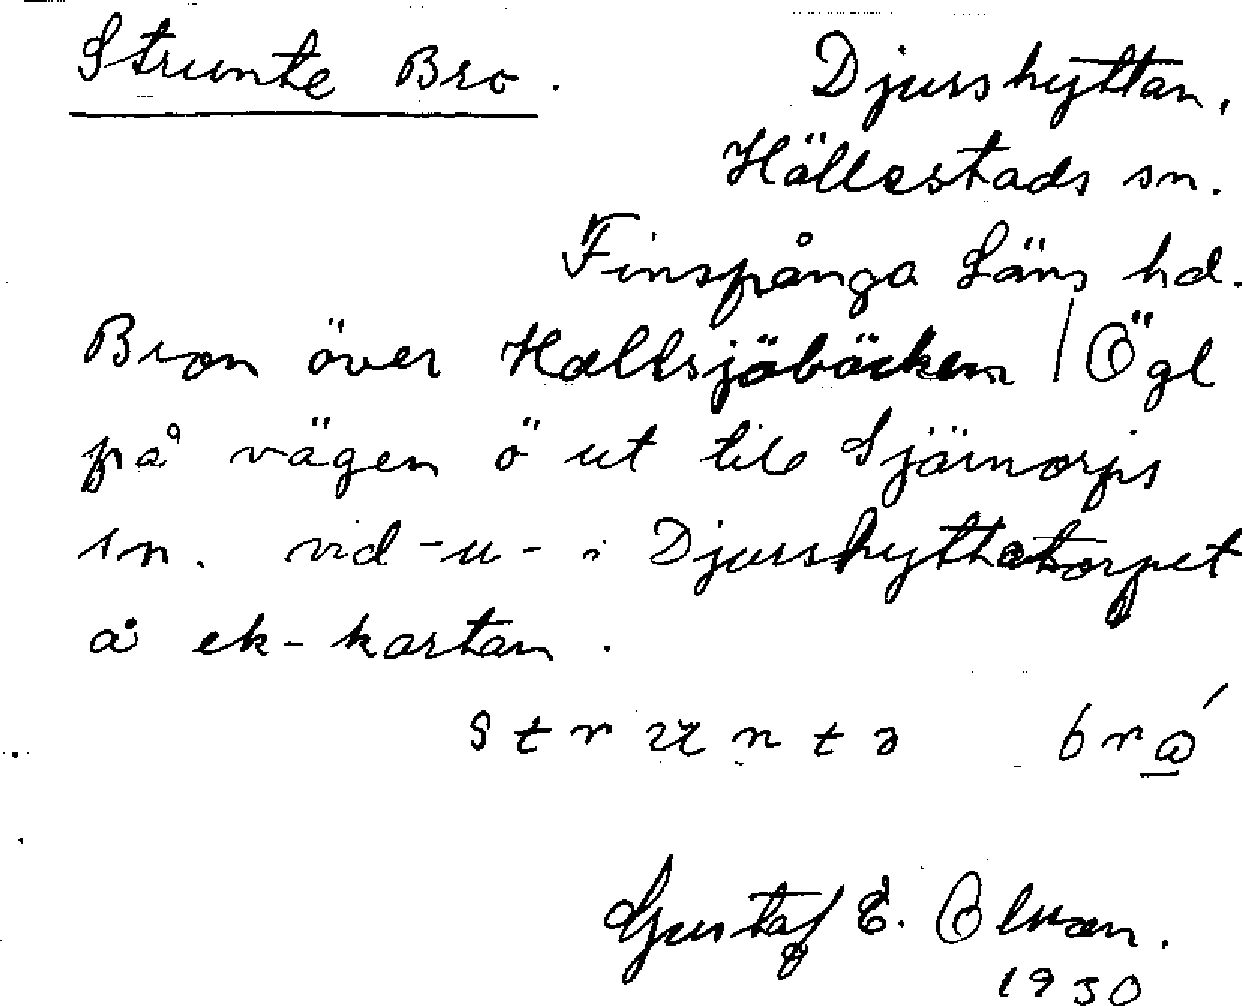 Strunte Bro.
Djurshyttan,
Hällestads sn.
Finspånga Läns hd.
Bron över Hallsjöbäcken / Ögl
på vägen ö ut till
sn. vid -u- i Djurshyttetorpet
å ek-kartan.
Gustaf E. Olsson.
1930